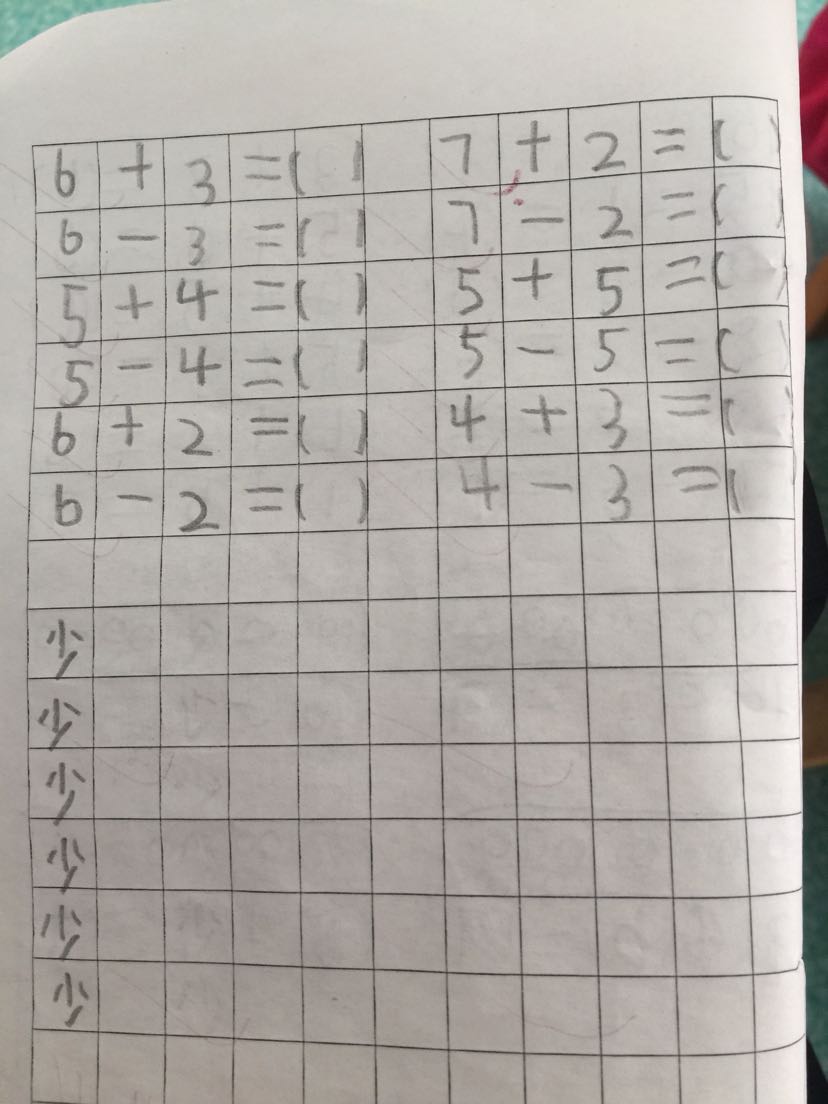 6 + 3 = ( ) 7 + 2 = ( )
6 - 3 = ( ) 7 - 2 = ( )
5 + 4 = ( ) 5 + 5 = ( )
5 - 4 = ( ) 5 - 5 = ( )
6 + 2 = ( ) 4 + 3 = ( )
6 - 2 = ( ) 4 - 3 = (
少
少
少
少
少
少